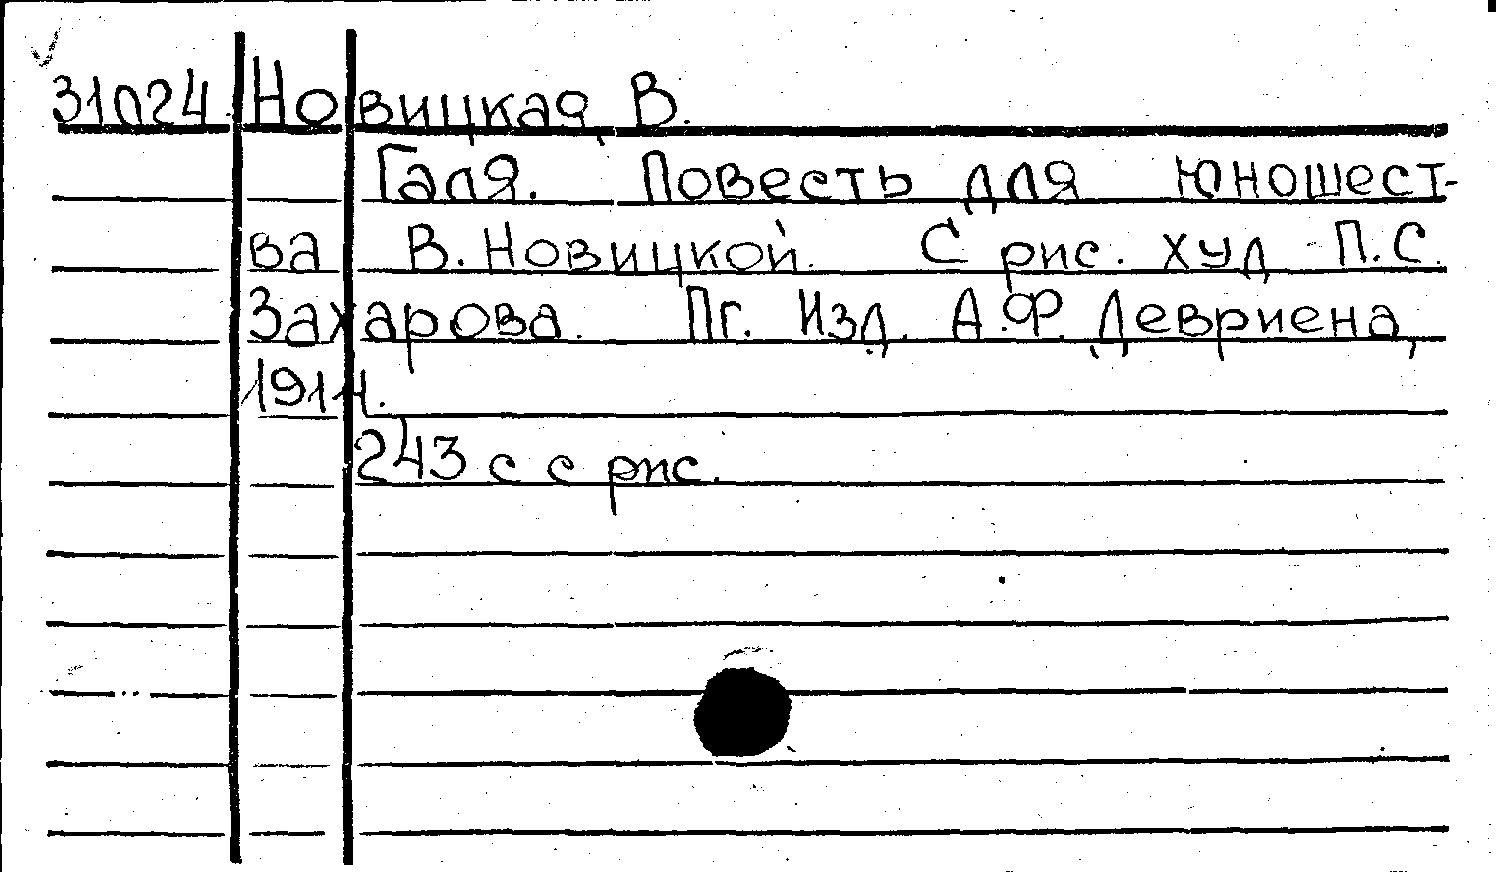 31024. Новицкая, В.
Галя. Повесть для юношест-
ва В. Новицкой. С рис. худ П.С.
Захарова. Пг. Изд. А.Ф. Девриена,
1914.
243 с с рис.